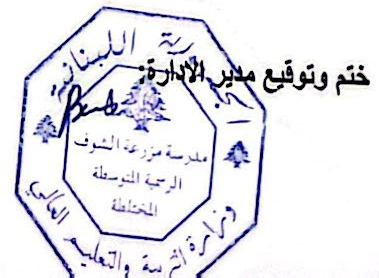 ختم وتوقيع مدير الادارة:
الجمهورية اللبنانية
مدرسة مزرعة الشوف
الرسمية المتوسطة
المختلطة
وزارة التربية والتعليم العالي